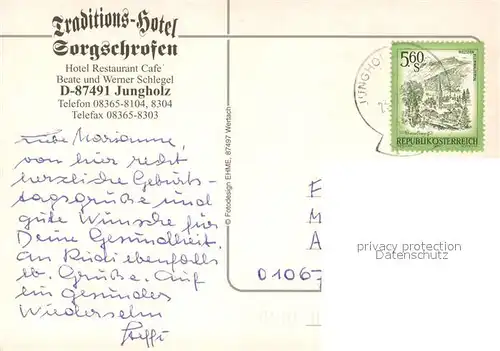 Traditions-Hotel
Sorgschrofen
Hotel Restaurant Cafe
Beate und Werner Schlegel
D-87491 Jungholz
Telefon 08365-8104, 8304
Telefax 08365-8303
Liebe Marianne,
von hier recht
herzliche Geburts-
tagsgrüße und
gute Wünsche für
Deine Gesundheit.
An Rudi ebenfalls
lb. Grüße. Auf
ein gesundes
Wiedersehn
Steffi
© Fotodesign EHME, 87497 Wertach
JUNGHO
5.60
S
REPUBLIK ÖSTERREICH
E
M
A
01067
privacy protection
Datenschutz